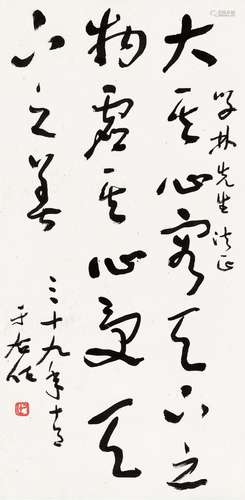 林先生法正
大其心容天下之
物虛其心受天
下之善
三十九年
于右任